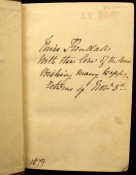 Miss Kendall
With the love of
Wishing many happy
returns of Nov: 3rd
1879